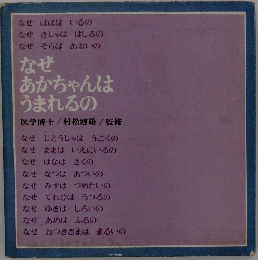 なぜ ばばは いるの
なぜ きしゃは はしるの
なぜ そらは あおいの
なぜ
あかちゃんは
うまれるの
医学博士/村松博雄/監修
なぜ じどうしゃは うごくの
なぜ ままは いえにいるの
なぜ はなは さくの
なぜ なつは あついの
なぜ みずは つめたいの
なぜ てれびは うつるの
なぜ ゆきは しろいの
なぜ あめは ふるの
なぜ おつきさまは まるいの